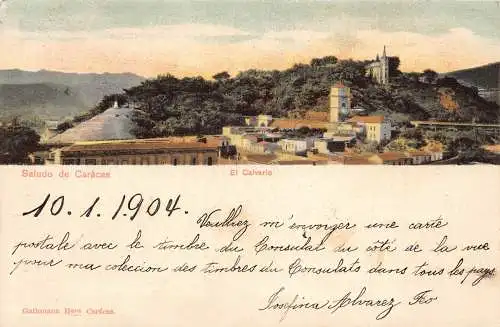 Saludo de Carácas
El Calvario
10.1.1904.
Veulliez m'envorger une carte
postale avec le timbre du Consulat du côté de la vue
pour ma coleccion des timbres du Consulats dans tous les pays
Josefina Alvarez Feo
Gathmann Hnos Carácas.